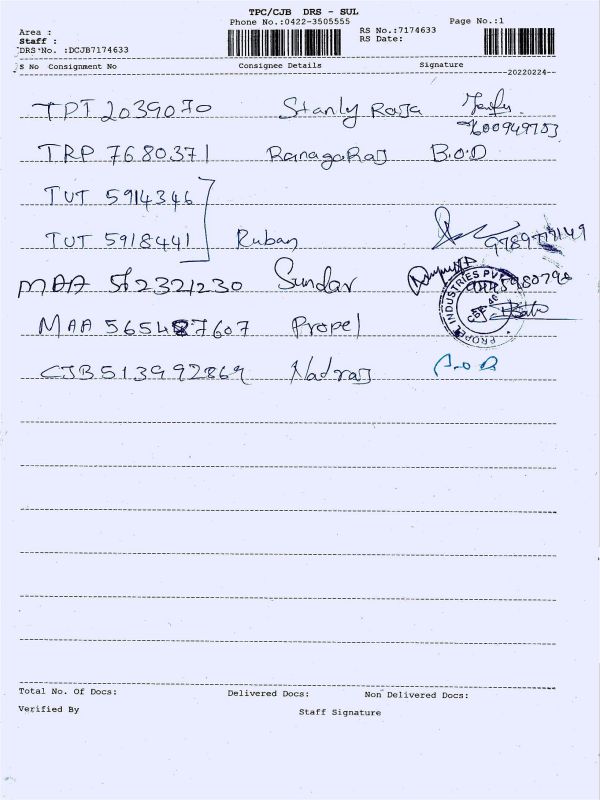 TPC/CJB DRS - SUL
Phone No.:0422-3505555
Page No.:1
Area :
Staff :
DRS No. :DCJB7174633
RS No.:7174633
RS Date:
S No Consignment No Consignee Details Signature
20220224
TPT 2039070 Stanly Raja
7600949753
TRP 7680371 RanagaRaj B.O.D
TUT 5914346
TUT 5918441 Ruban
MAA 2321230 Sundar
MAA Propel
PROPEL INDUSTRIES PVT
CJB513992869 Natraj
Total No. Of Docs: Delivered Docs: Non Delivered Docs:
Verified By Staff Signature